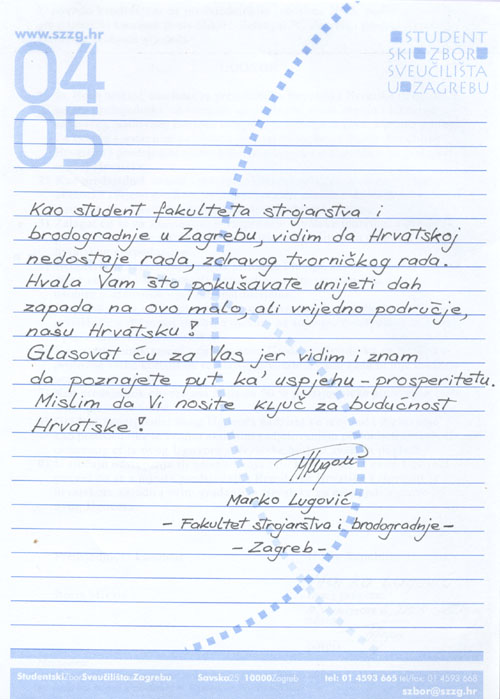 www.szzg.hr
04
05
STUDENT
SKI ZBOR
SVEUČILIŠTA
U ZAGREBU
Kao student fakulteta strojarstva i
brodogradnje u Zagrebu, vidim da Hrvatskoj
nedostaje rada, zdravog tvorničkog rada.
Hvala Vam što pokušavate unijeti dah
zapada na ovo malo, ali vrijedno područje,
našu Hrvatsku!
Glasovat ću za Vas jer vidim i znam
da poznajete put ka' uspjehu - prosperitetu.
Mislim da Vi nosite ključ za budućnost
Hrvatske!
Marko Lugović
- Fakultet strojarstva i brodogradnje -
- Zagreb -
StudentskiZborSveučilištauZagrebu Savska25 10000Zagreb tel: 01 4593 665 tel/fax: 01 4593 668
szbor@szzg.hr